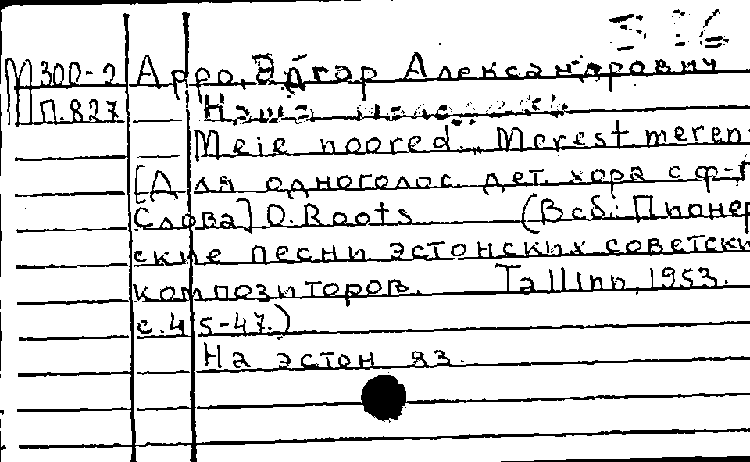 М300-2 Арро, Эдгар Александрович
П.827 Наша молодежь
Meie noored. Merest mereni
[Для одноголос. дет. хора с ф-п
Слова] O. Roots (В сб: Пионер
ские песни эстонских советски
композиторов. Tallinn, 1953.
с. 45-47.)
На эстон яз.